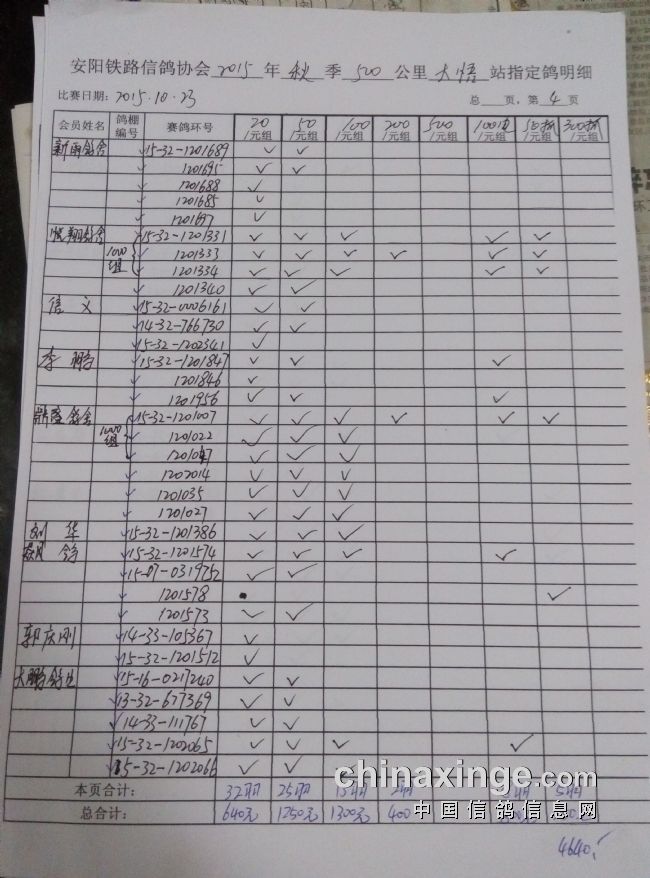 安阳铁路信鸽协会 2015 年 秋 季 500 公里 大悟 站指定鸽明细
比赛日期：2015.10.23 总 页，第 4 页
会员姓名 鸽棚编号 赛鸽环号 20/元组 50/元组 100/元组 200/元组 500/元组 100 /元组 50 /元组 300 /元组
新雨鸽舍 ✓15-32-1201689 ✓ ✓
✓ 1201695 ✓ ✓
✓ 1201688 ✓
✓ 1201685 ✓
✓ 1201697 ✓
翔鸽舍 ✓15-32-1201331 ✓ ✓ ✓ ✓ ✓
1000组 ✓ 1201333 ✓ ✓ ✓ ✓ ✓ ✓
✓ 1201334 ✓ ✓ ✓ ✓ ✓
✓ 1201340 ✓ ✓
信文 ✓15-32-0006161 ✓ ✓
✓14-32-766730 ✓ ✓
✓15-32-1202341 ✓
李鹏 ✓15-32-1201847 ✓ ✓ ✓
✓ 1201846 ✓
✓ 1201956 ✓ ✓ ✓
鼎盛鸽舍 ✓15-32-1201007 ✓ ✓ ✓ ✓ ✓ ✓
1000组 ✓ 1201022 ✓ ✓ ✓
✓ ✓ ✓ ✓
✓ 1202014 ✓ ✓ ✓
✓ 1201035 ✓ ✓ ✓
✓ 1201027 ✓ ✓ ✓
刘华 ✓15-32-1201386 ✓ ✓ ✓
✓15-32-1201574 ✓ ✓ ✓ ✓
✓15-07-0319752 ✓ ✓
✓ 1201578 ✓
✓ 1201573 ✓ ✓
郭庆刚 ✓14-33-105367 ✓
✓15-32-1201512 ✓
大鹏 ✓15-16-0217240 ✓ ✓
✓13-32-677369 ✓ ✓
✓14-33-111767 ✓ ✓
✓15-32-1202065 ✓ ✓ ✓ ✓
✓15-32-1202066 ✓ ✓
本页合计： 32羽 25羽 13羽 2羽 5羽
总合计： 640元 1250元 1300元 400
4640
chinaxinge.com
中国信鸽信息网